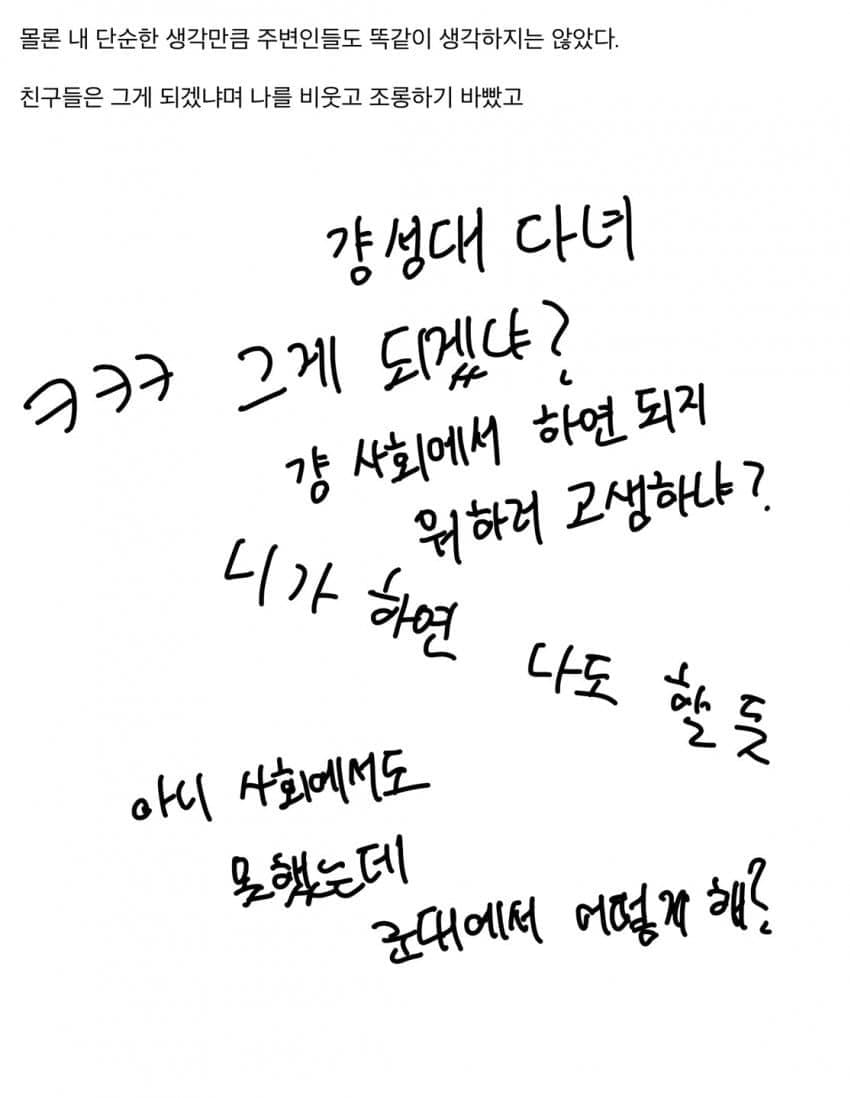 물론 내 단순한 생각만큼 주변인들도 똑같이 생각하지는 않았다.
친구들은 그게 되겠냐며 나를 비웃고 조롱하기 바빴고
걍 성대 다녀
ㅋㅋㅋ 그게 되겠냐?
걍 사회에서 하면 되지
뭐하러 고생하냐?
니가 하면 나도 할 듯
아니 사회에서도
못했는데
군대에서 어떻게 해?